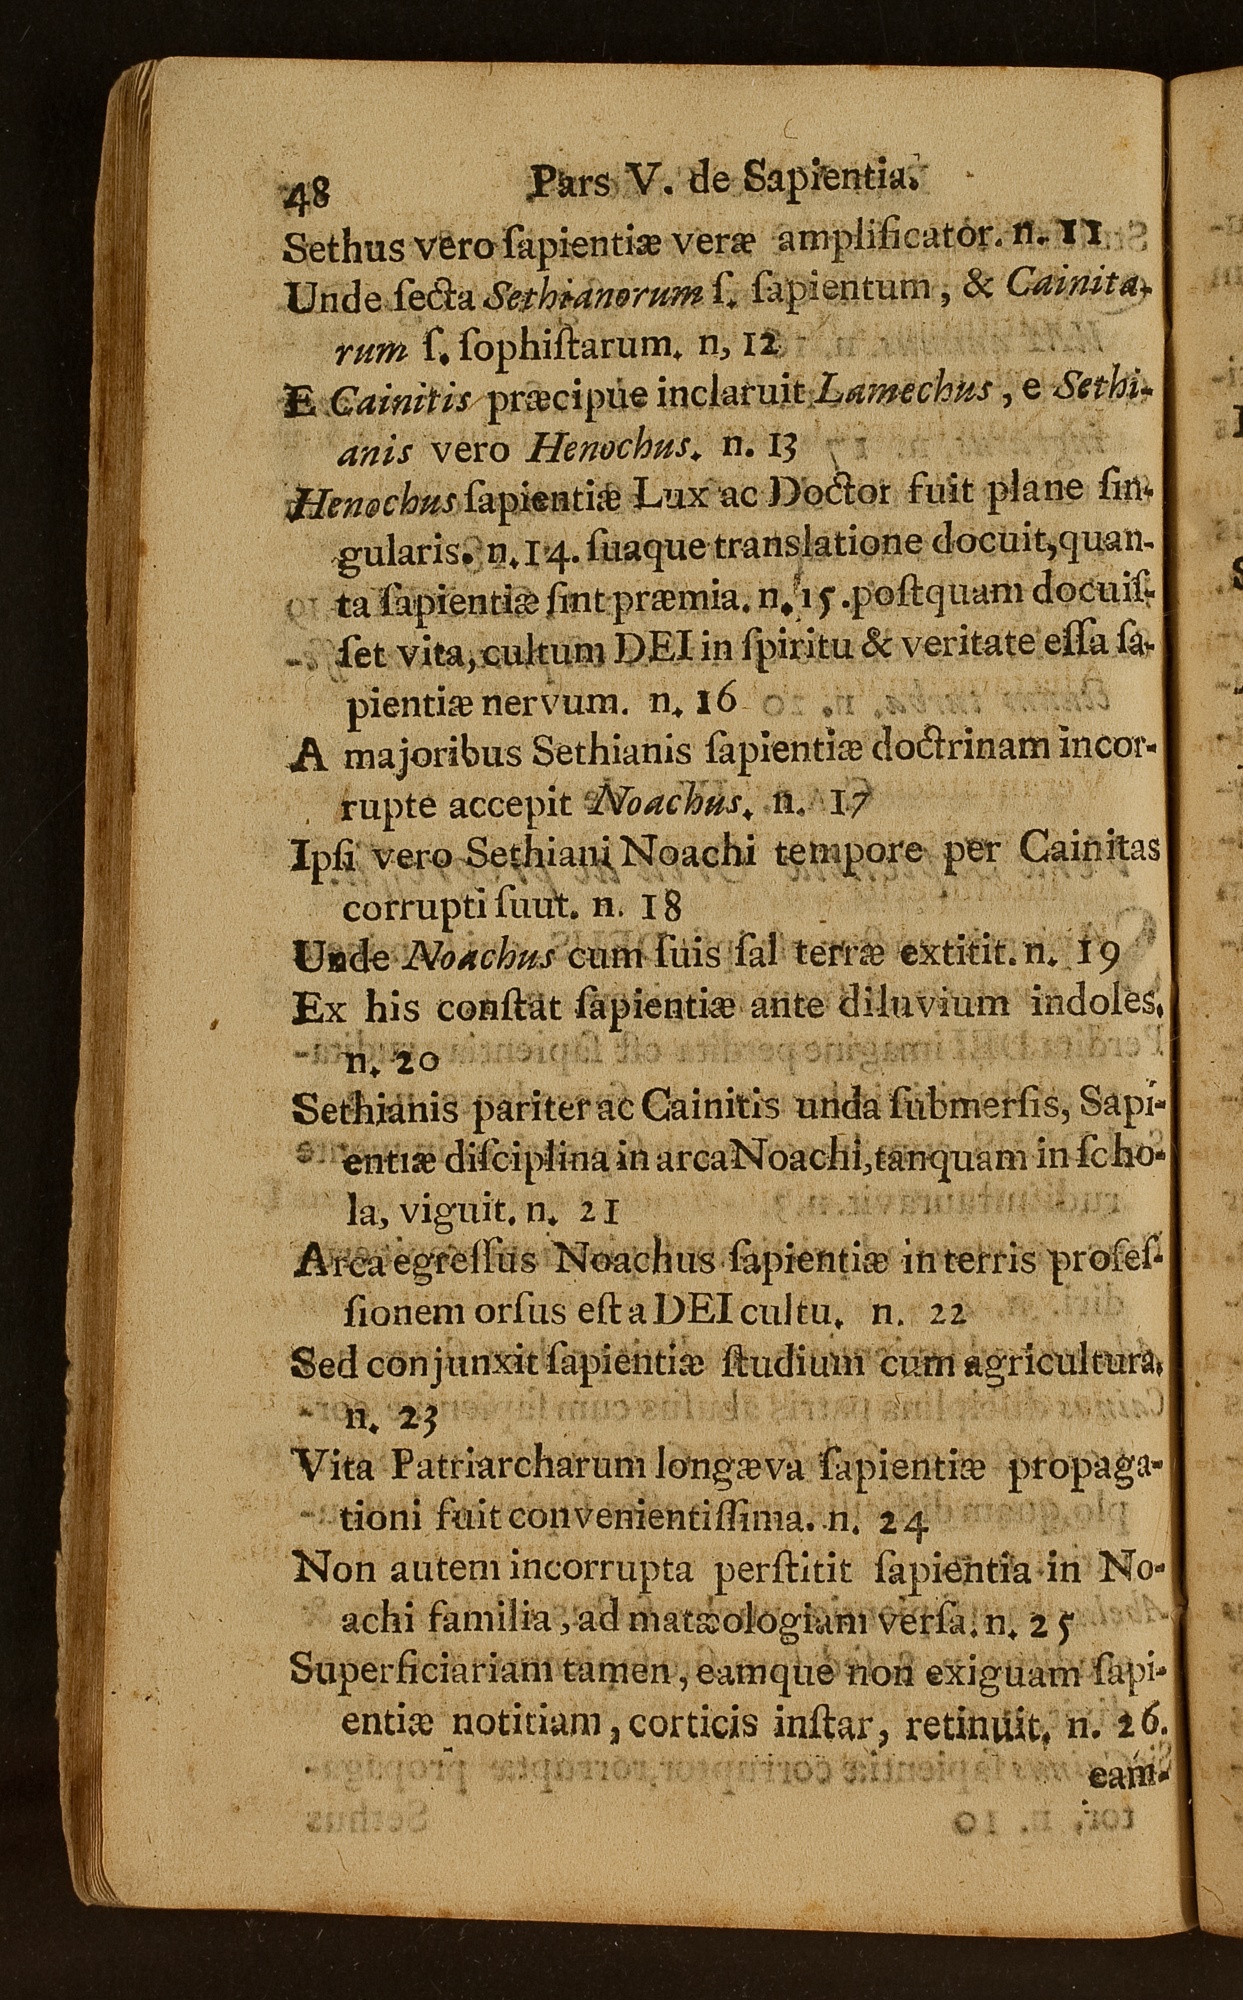 48 Pars V. de Sapientia.
Sethus vero ſapientiæ veræ amplificator. n. 11
Unde ſecta Sethianorum ſ. ſapientum, & Cainita-
rum ſ. ſophiſtarum. n, 12
E Cainitis præcipue inclaruit Lamechus, e Sethi-
anis vero Henochus. n. 13
Henochus ſapientiæ Lux ac Doctor fuit plane ſin-
gularis. n. 14. ſuaque translatione docuit, quan-
ta ſapientiæ ſint præmia. n. 15. poſtquam docuiſ-
ſet vita, cultum DEI in ſpiritu & veritate eſſa ſa-
pientiæ nervum. n. 16
A majoribus Sethianis ſapientiæ doctrinam incor-
rupte accepit Noachus. n. 17
Ipſi vero Sethiani Noachi tempore per Cainitas
corrupti ſuut. n. 18
Unde Noachus cum ſuis ſal terræ extitit. n. 19
Ex his conſtat ſapientiæ ante diluvium indoles.
n. 20
Sethianis pariter ac Cainitis unda ſubmerſis, Sapi-
entiæ diſciplina in arca Noachi, tanquam in ſcho-
la, viguit. n. 21
Arca egreſſus Noachus ſapientiæ in terris profeſ-
ſionem orſus eſt a DEI cultu. n. 22
Sed conjunxit ſapientiæ ſtudium cum agricultura.
n. 23
Vita Patriarcharum longæva ſapientiæ propaga-
tioni fuit convenientiſſima. n. 24
Non autem incorrupta perſtitit ſapientia in No-
achi familia, ad matæologiam verſa. n. 25
Superficiariam tamen, eamque non exiguam ſapi-
entiæ notitiam, corticis inſtar, retinuit. n. 26.
eam-